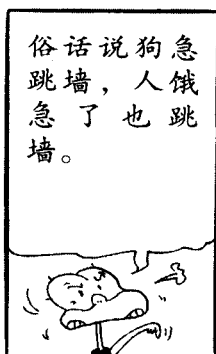 俗话说狗急
跳墙，人饿
急了也跳
墙。